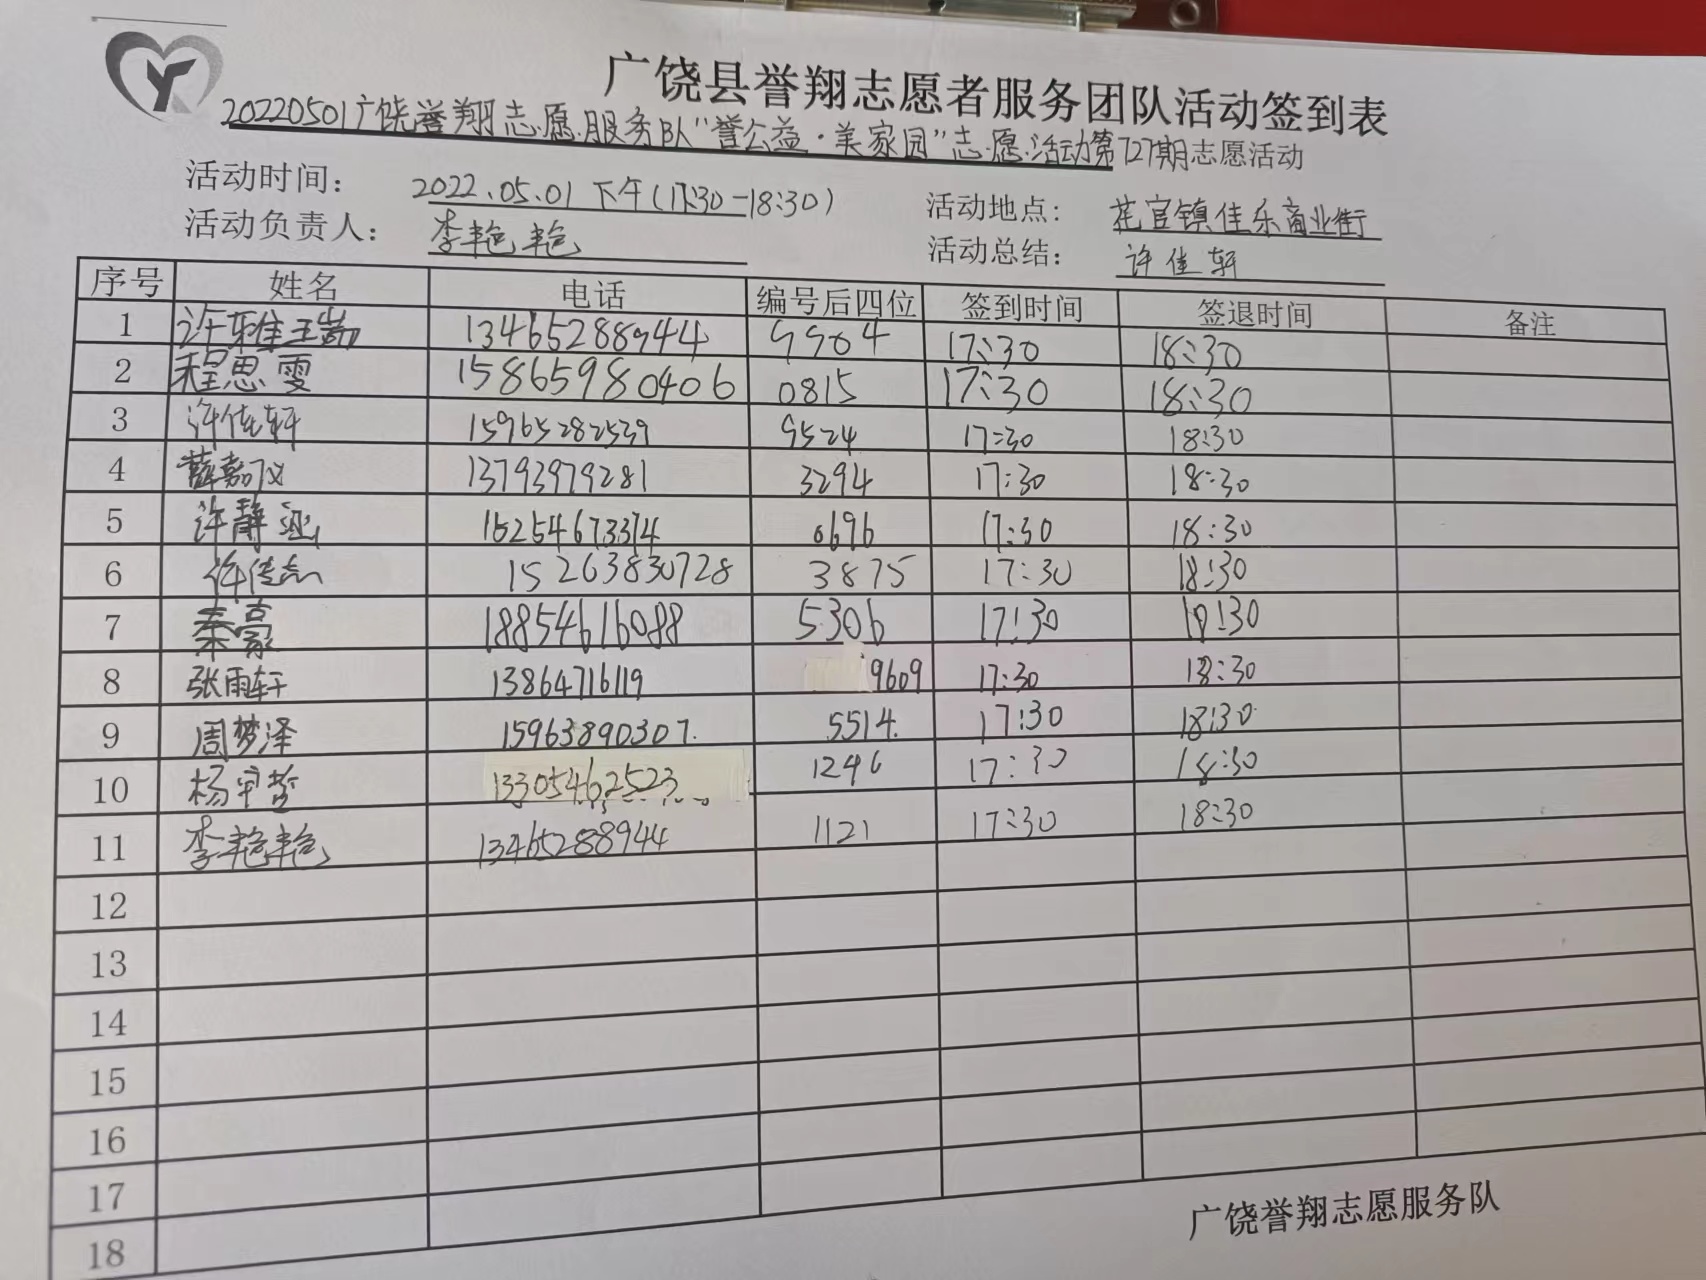 广饶县誉翔志愿者服务团队活动签到表
20220501广饶誉翔志愿服务队“誉公益·美家园”志愿活动第727期志愿活动
活动时间： 2022.05.01 下午(17:30-18:30) 活动地点： 花官镇佳乐商业街
活动负责人： 李艳艳 活动总结： 许佳轩
序号 姓名 电话 编号后四位 签到时间 签退时间 备注
1 13465288944 9904 17:30 18:30
2 程思雯 15865980406 0815 17:30 18:30
3 许佳轩 15965282539 9524 17:30 18:30
4 薛嘉仪 13793979281 3294 17:30 18:30
5 许静涵 15254673374 0696 17:30 18:30
6 15263830728 3875 17:30 18:30
7 秦豪 18854616088 5306 17:30 18:30
8 张雨轩 13864716119 9609 17:30 18:30
9 周梦泽 15963890307. 5514. 17:30 18:30
10 13305462523 1246 17:30 18:30
11 李艳艳 13465288944 1121 17:30 18:30
12
13
14
15
16
17
18
广饶誉翔志愿服务队